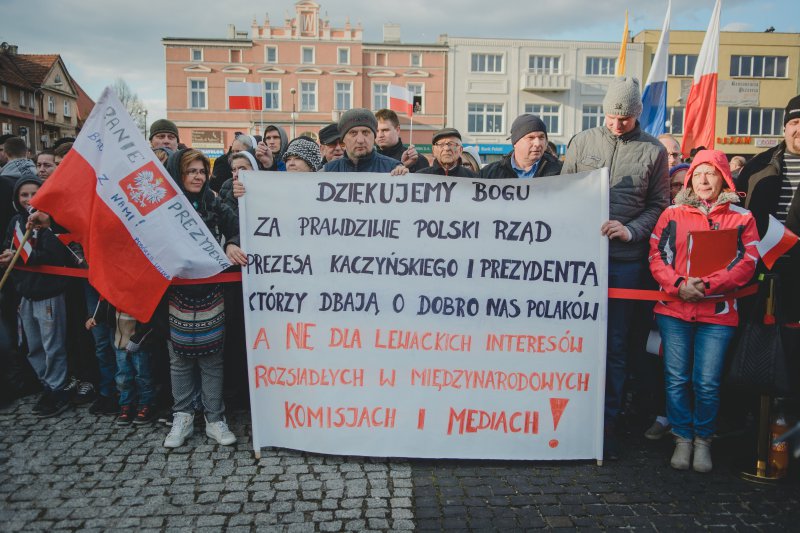 DZIĘKUJEMY BOGU
ZA PRAWDZIWIE POLSKI RZĄD
PREZESA KACZYŃSKIEGO I PREZYDENTA
KTÓRZY DBAJĄ O DOBRO NAS POLAKÓW
A NIE DLA LEWACKICH INTERESÓW
ROZSIADŁYCH W MIĘDZYNARODOWYCH
KOMISJACH I MEDIACH!
PANIE PREZYDENCIE
BÓG Z NAMI!
Bank Polski